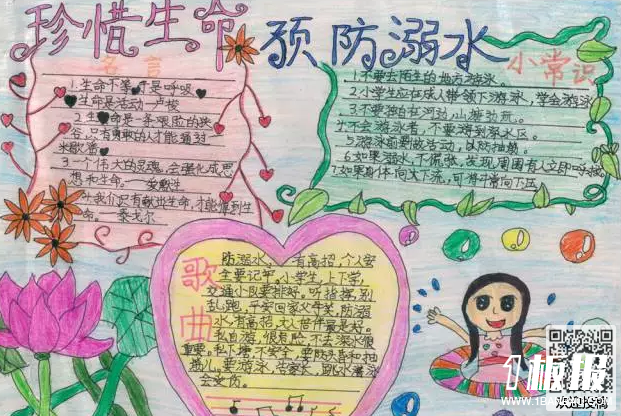 珍惜生命 预防溺水
名言
1.生命不等于是呼吸
生命是活动一卢梭
2.生命是一条艰险的狭
谷,只有勇敢的人才能通过
米歇潘
3.一个伟大的灵魂,会强化成思
想和生命。一爱默生
我们只有献出生命,才能得到生
命。一泰戈尔
小常识
1.不要去陌生的地方游泳。
2.小学生应在成人带领下游泳,学会游泳
3.不要独自在河边,山塘边玩。
不会游泳者,不要游到深水区。
5.游泳前要做活动,以防抽筋。
6.如果溺水,不慌张,发现周围有人立即
7.如果身体向大下沉,可将手向下压
歌曲
防溺水,有高招,个人安
全要记牢,小学生,上下学,
交通小队要排好。听指挥,别
乱跑,平安回家父母笑。防溺
水,有高招,大人陪伴最是好。
私自游,很冒险,
重。私下塘不安全,要防
游泳,
会实伤。
1板报
WWW.1BANBAO.COM